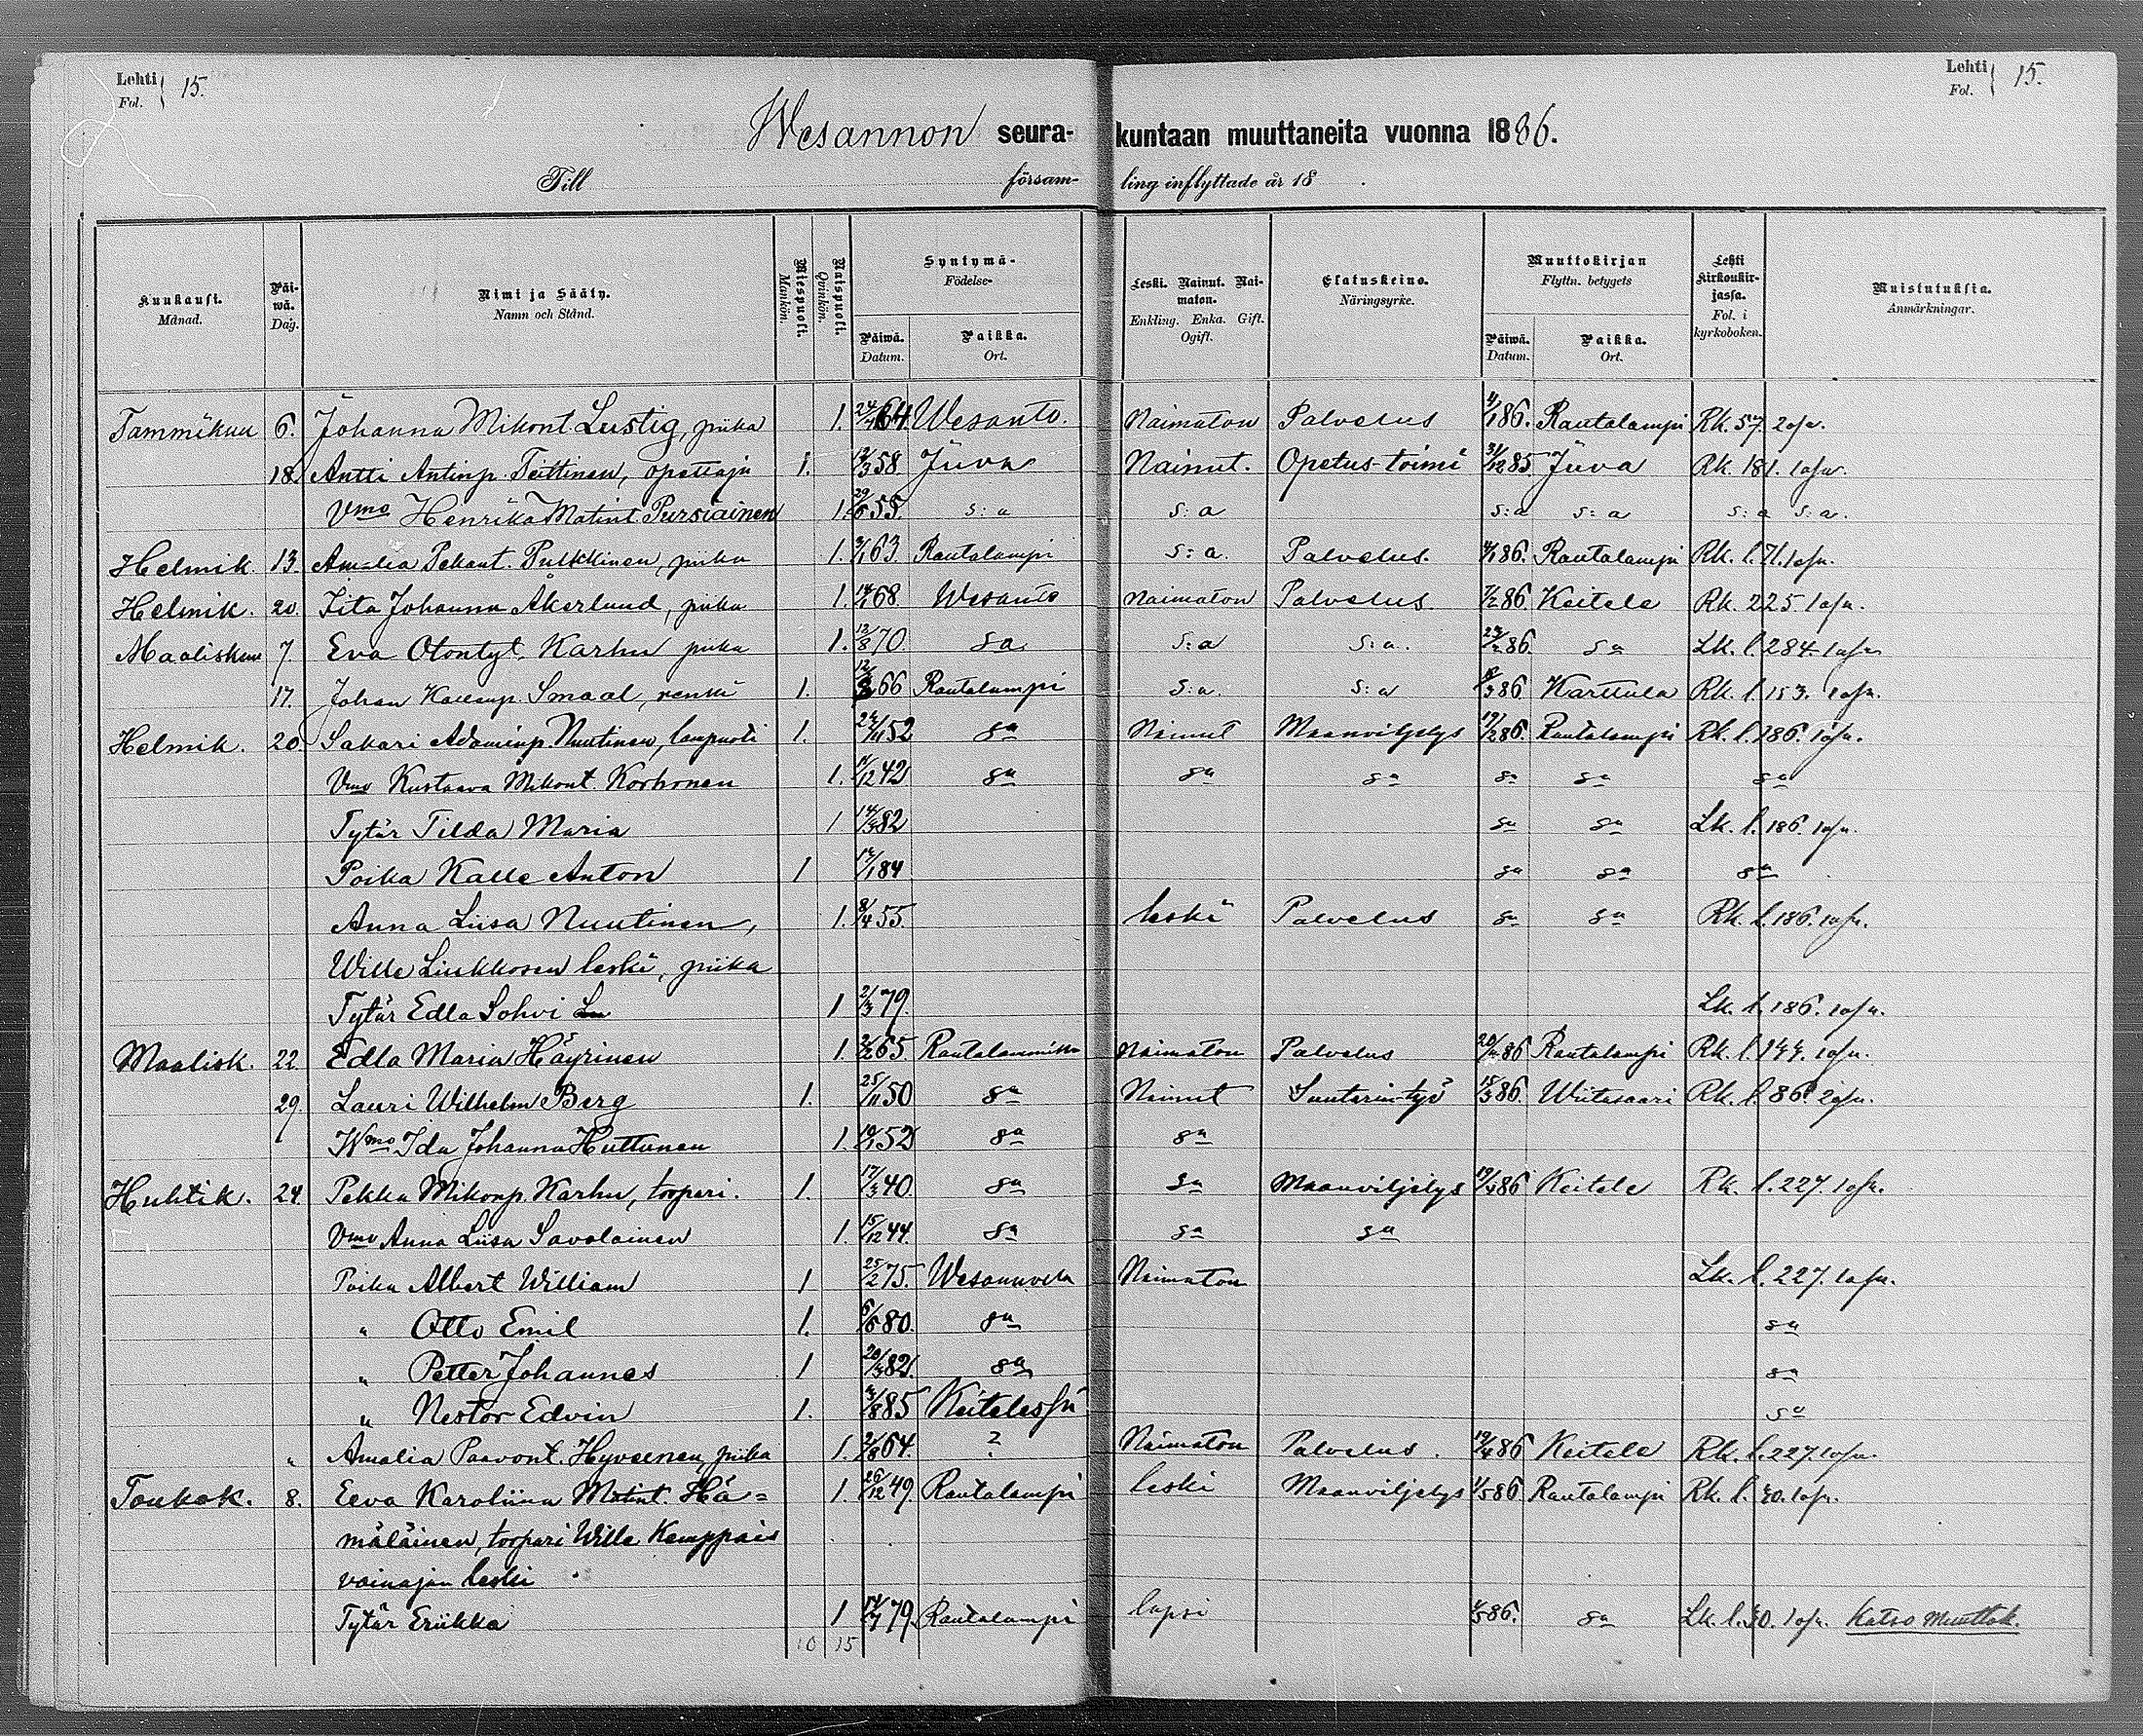 Lehti Fol. 15. Lehti Fol. 15.
Wesannon seura- kuntaan muuttaneita vuonna 1886.
Till försam- ling inflyttade år 18 .
Kuukausi. Månad. Päi-wä. Dag. Nimi ja Sääty. Namn och Stånd. Miespuoli. Mankön. Naispuoli. Qvinkön. Syntymä- Födelse- Päiwä. Datum. Paikka. Ort. Leski. Nainut. Nai-maton. Enkling. Enka. Gift. Ogift. Elatuskeino. Näringsyrke. Muuttokirjan Flyttn. betygets Päiwä. Datum. Paikka. Ort. Lehti Kirkonkir-jassa. Fol. i kyrkoboken. Muistutuksia. Anmärkningar.
Tammikuu 6. Johanna Mikont Lustig, piika 1. 64 Wesanto. Naimaton Palvelus 86. Rautalampi Rk. 57.
18. Antti Antinp. Teittinen, opettaja 1. 58 Juva Nainut. Opetus-toimi 31/12 85 Juva Rk. 181.
Vmo Henrika Matint. Pursiainen 1. 55. s:a s:a s:a s:a s:a s:a.
Helmik. 13. Amalia Pekant. Pulkkinen, piika 1. 63. Rautalampi s:a. Palvelus. 86. Rautalampi Rk. l. 71.
Helmik. 20. Iita Johanna Åkerlund, piika 1. 68. Wesanto Naimaton Palvelus. 7/2 86. Keitele Rk. 225.
Maaliskuu 7. Eva Otontyt. Karhu piika 1. 12/8 70. sa s:a s:a. 86. sa Lk. l. 284.
17. Johan Smaal, renki 1. 66 Rautalampi s:a. s:a 86 Karttula Rk. l. 153.
Helmik. 20. Sakari Adaminp. Nuutinen, lampuoti 1. 52 sa Nainut Maanviljelys 86. Rautalampi Rk. l. 186.
Vmo Kustaava Mikont. Korhonen 1. 42 sa sa sa sa sa sa
Tytär Tilda Maria 1 82 sa sa Lk. l. 186.
Poika Kalle Anton 1 84 sa sa sa
Anna Liisa Nuutinen, 1. 8/4 55. leski Palvelus sa sa Rk. l. 186.
Wille Liukkosen leski, piika
Tytär Edla Sohvi 1 79. Lk. l. 186.
Maalisk. 22. Edla Maria Häyrinen 1. 65 Naimaton Palvelus 86 Rautalampi Rk. l. 144.
29. Lauri Wilhelm Berg 1. 25/11 50 sa Nainut Suutarin-työ 15/3 86. Wiitasaari Rk. l. 86.
Wmo Ida Johanna Huttunen 1. 52 sa sa
Huhtik. 24. Pekka Mikonp. Karhu, torpari. 1. 17/3 40. sa sa Maanviljelys 19/4 86 Keitele Rk. l. 227.
Vmo Anna Liisa Savolainen 1. 15/12 44. sa sa sa
Poika Albert William 1 25/2 75. Naimaton Lk. l. 227.
" Otto Emil 1. 80. sa sa
" Petter Johannes 1 20/3 82. sa sa
" Nestor Edvin 1. 85 sa
" Amalia Paavont. Hyvoenen, piika 1. 64. ? Naimaton Palvelus. 19/4 86 Keitele Rk. l. 227.
Toukok. 8. Eeva Karoliina Matint. Hä- 1. 26/12 49. Rautalampi leski Maanviljelys 1/5 86 Rautalampi Rk. l. 40.
mäläinen, torpari Wille Kemppais
vainajan leski
Tytär Eriikka 1 79. Rautalampi lapsi 86. sa Lk. l. 40. Katso Muuttok.
10 15